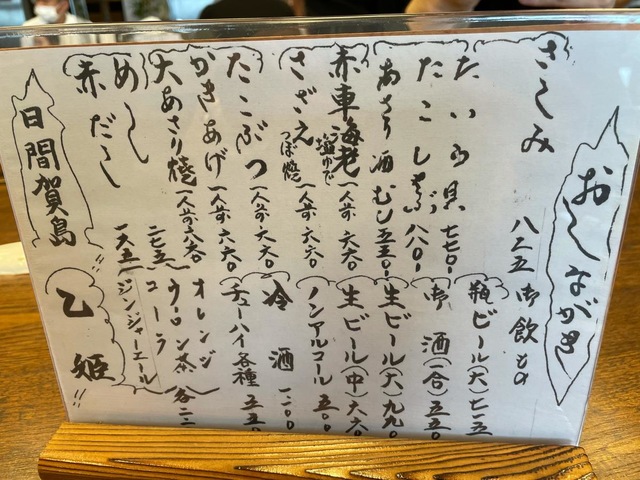 おしながき
さしみ 八二五
たいら貝 七七〇
たこしゃぶ 八八〇
あさり酒むし 五五〇
赤車海老 塩ゆで 一人前 六六〇
さざえ つぼ焼 一人前 六六〇
たこぶつ 六六〇
かきあげ 一人前 六六〇
大あさり焼 一人前 六六〇
めし 二七五
赤だし 一六五
御飲もの
瓶ビール(大)七一五
御酒(合)五五〇
生ビール(大)九九〇
生ビール(中)六六〇
ノンアルコール 五〇〇
冷酒 一二〇〇
チューハイ各種 五五〇
オレンジ
ウーロン茶 各二二
コーラ
ジンジャーエール
日間賀島!!
乙姫!!